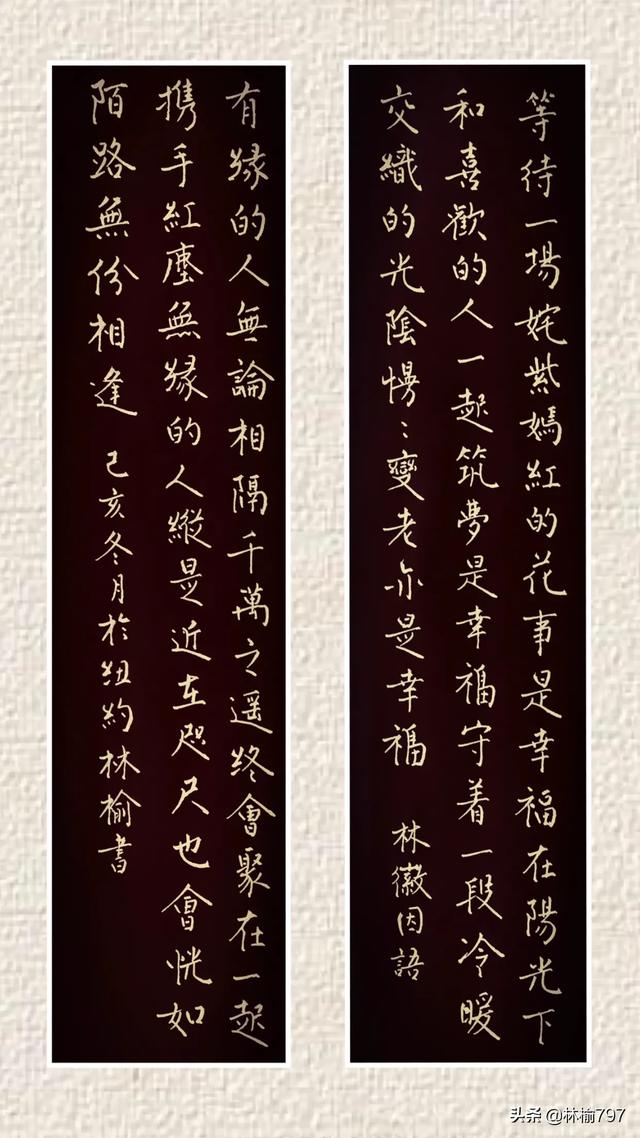 等待一場姹紫嫣紅的花事是幸福在陽光下
和喜歡的人一起筑夢是幸福守着一段冷暖
交織的光陰慢〻變老亦是幸福 林徽因語
有緣的人無論相隔千萬之遥終會聚在一起
携手紅塵無緣的人縱是近在咫尺也會恍如
陌路無份相逢 己亥冬月於紐約林榆書
头条 @林榆797